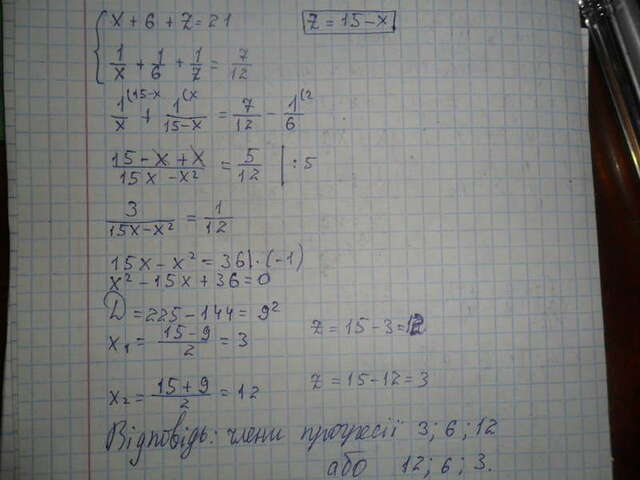 x + 6 + z = 21   z = 15 - x
1/x + 1/6 + 1/z = 7/12
1/x (15-x + 1/(15-x) (x = 7/12 - 1/6 (2
(15 - x + x)/(15x - x²) = 5/12 | : 5
3/(15x - x²) = 1/12
15x - x² = 36 | · (-1)
x² - 15x + 36 = 0
D = 225 - 144 = 9²
x₁ = (15 - 9)/2 = 3   z = 15 - 3 = 12
x₂ = (15 + 9)/2 = 12   z = 15 - 12 = 3
Відповідь: члени прогресії 3; 6; 12
або 12; 6; 3.